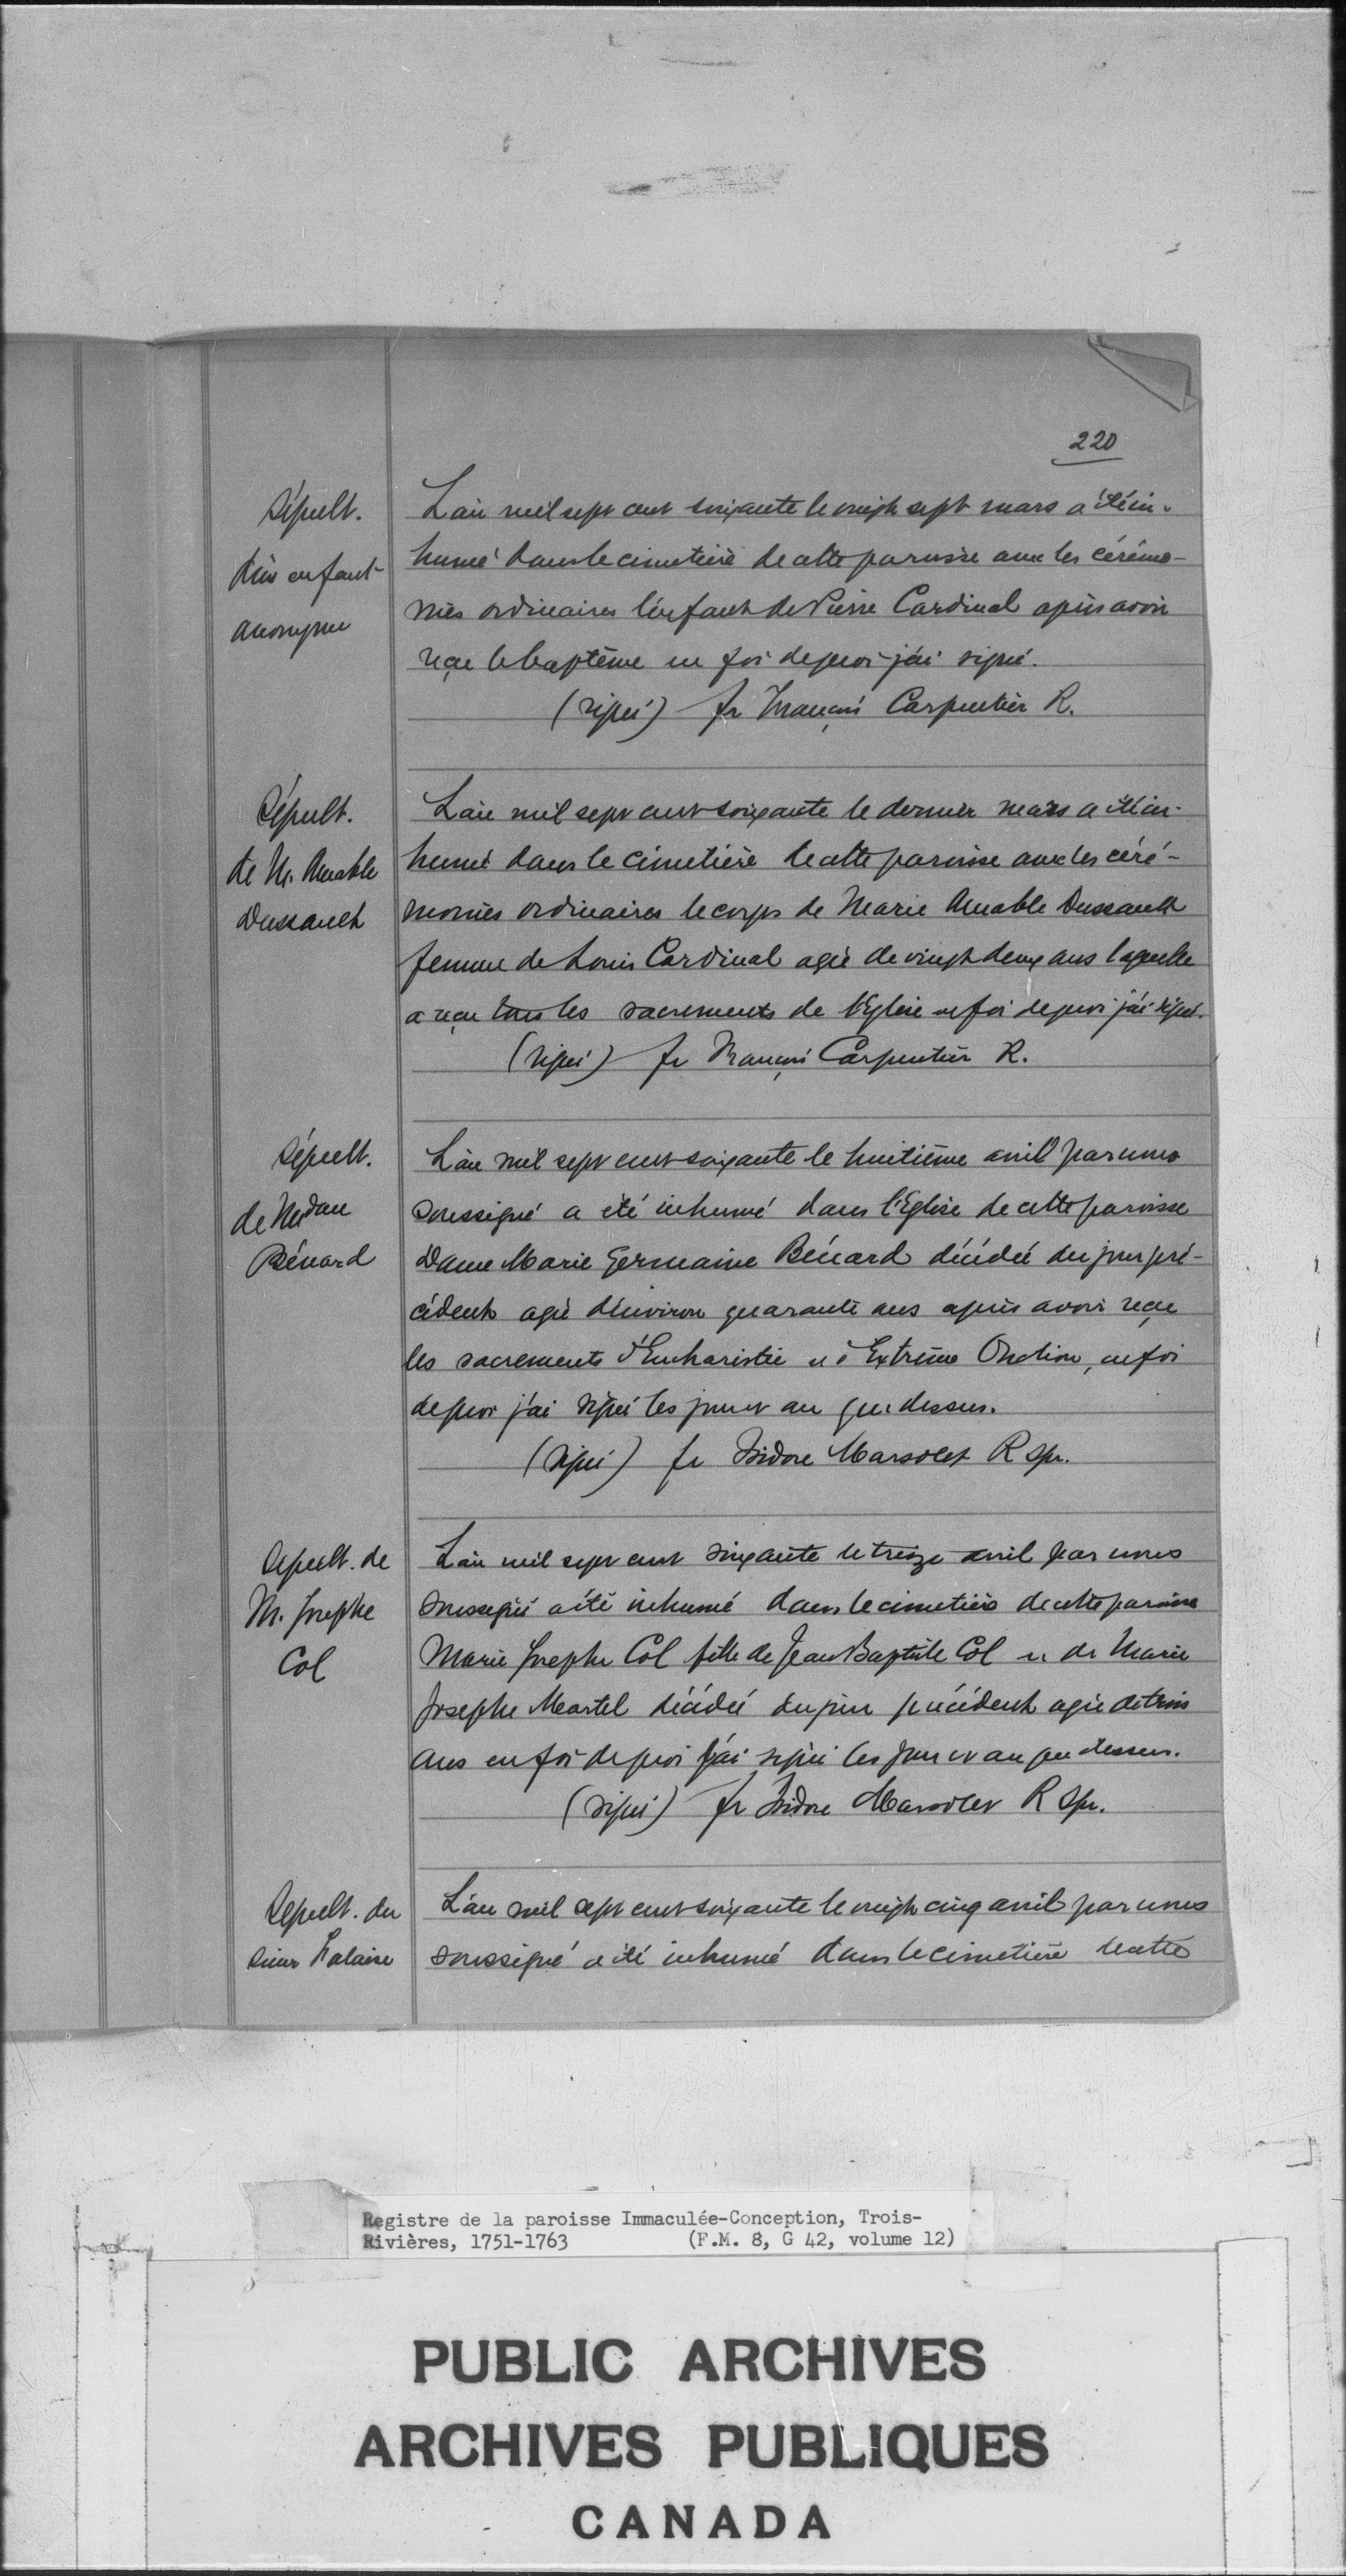 220
Sépult.
d'un enfant
anonyme
L'an mil sept cent soixante le vingt sept mars a été in-
humé dans le cimetière de cette paroisse avec les cérémo-
nies ordinaires l'enfant de Pierre Cardinal après avoir
reçu le baptême en foi de quoi j'ai signé.
(signé) fr François Carpentier R.
Sépult.
de M. Amable
Dussault
L'an mil sept cent soixante le dernier mars a été in-
humé dans le cimetière de cette paroisse avec les céré-
monies ordinaires le corps de Marie Amable Dussault
femme de Louis Cardinal agée de vingt deux ans laquelle
a reçu tous les sacrements de l'Eglise en foi de quoi j'ai signé.
(signé) fr François Carpentier R.
Sépult.
de Mdme
Bénard
L'an mil sept cent soixante le huitième avril par nous
soussigné a été inhumé dans l'Eglise de cette paroisse
Dame Marie Germaine Bénard décédée du jour pré-
cédent agée d'environ quarante ans après avoir reçu
les sacrements d'Eucharistie et d'Extrême Onction, en foi
de quoi j'ai signé les jour et an que dessus.
(signé) fr Isidore Marsolet R Spr.
Sepult. de
M. Josephe
Col
L'an mil sept cent soixante le treize avril par nous
soussigné a été inhumé dans le cimetière de cette paroisse
Marie Josephe Col fille de Jean Baptiste Col et de Marie
Josephe Martel décédée du jour précédent agée de trois
ans en foi de quoi j'ai signé les jour et an que dessus.
(signé) fr Isidore Marsolet R Spr.
Sepult. du
sieur
L'an mil sept cent soixante le vingt cinq avril par nous
soussigné a été inhumé dans le cimetière de cette
Registre de la paroisse Immaculée-Conception, Trois-
Rivières, 1751-1763 (F.M. 8, G 42, volume 12)
PUBLIC ARCHIVES
ARCHIVES PUBLIQUES
CANADA